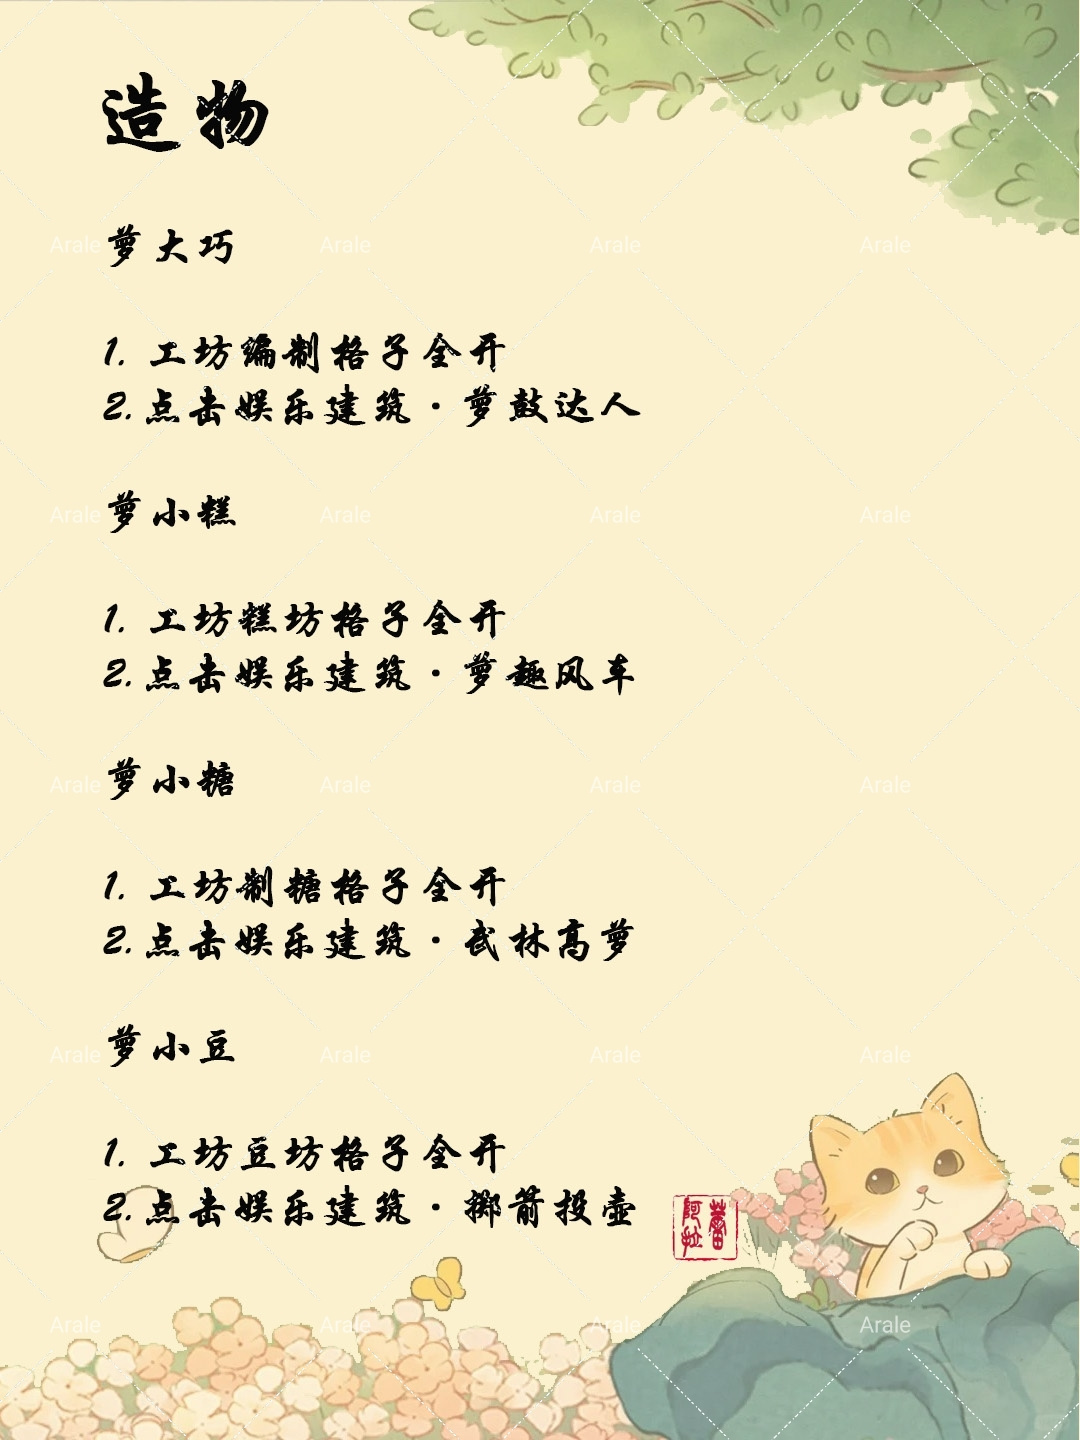 造物
萝大巧
1. 工坊编制格子全开
2.点击娱乐建筑·萝鼓达人
萝小糕
1. 工坊糕坊格子全开
2.点击娱乐建筑·萝趣风车
萝小糖
1. 工坊制糖格子全开
2.点击娱乐建筑·武林高萝
萝小豆
1. 工坊豆坊格子全开
2.点击娱乐建筑·掷箭投壶
Arale Arale Arale Arale
Arale Arale Arale Arale
Arale Arale Arale Arale
Arale Arale Arale Arale
Arale Arale Arale